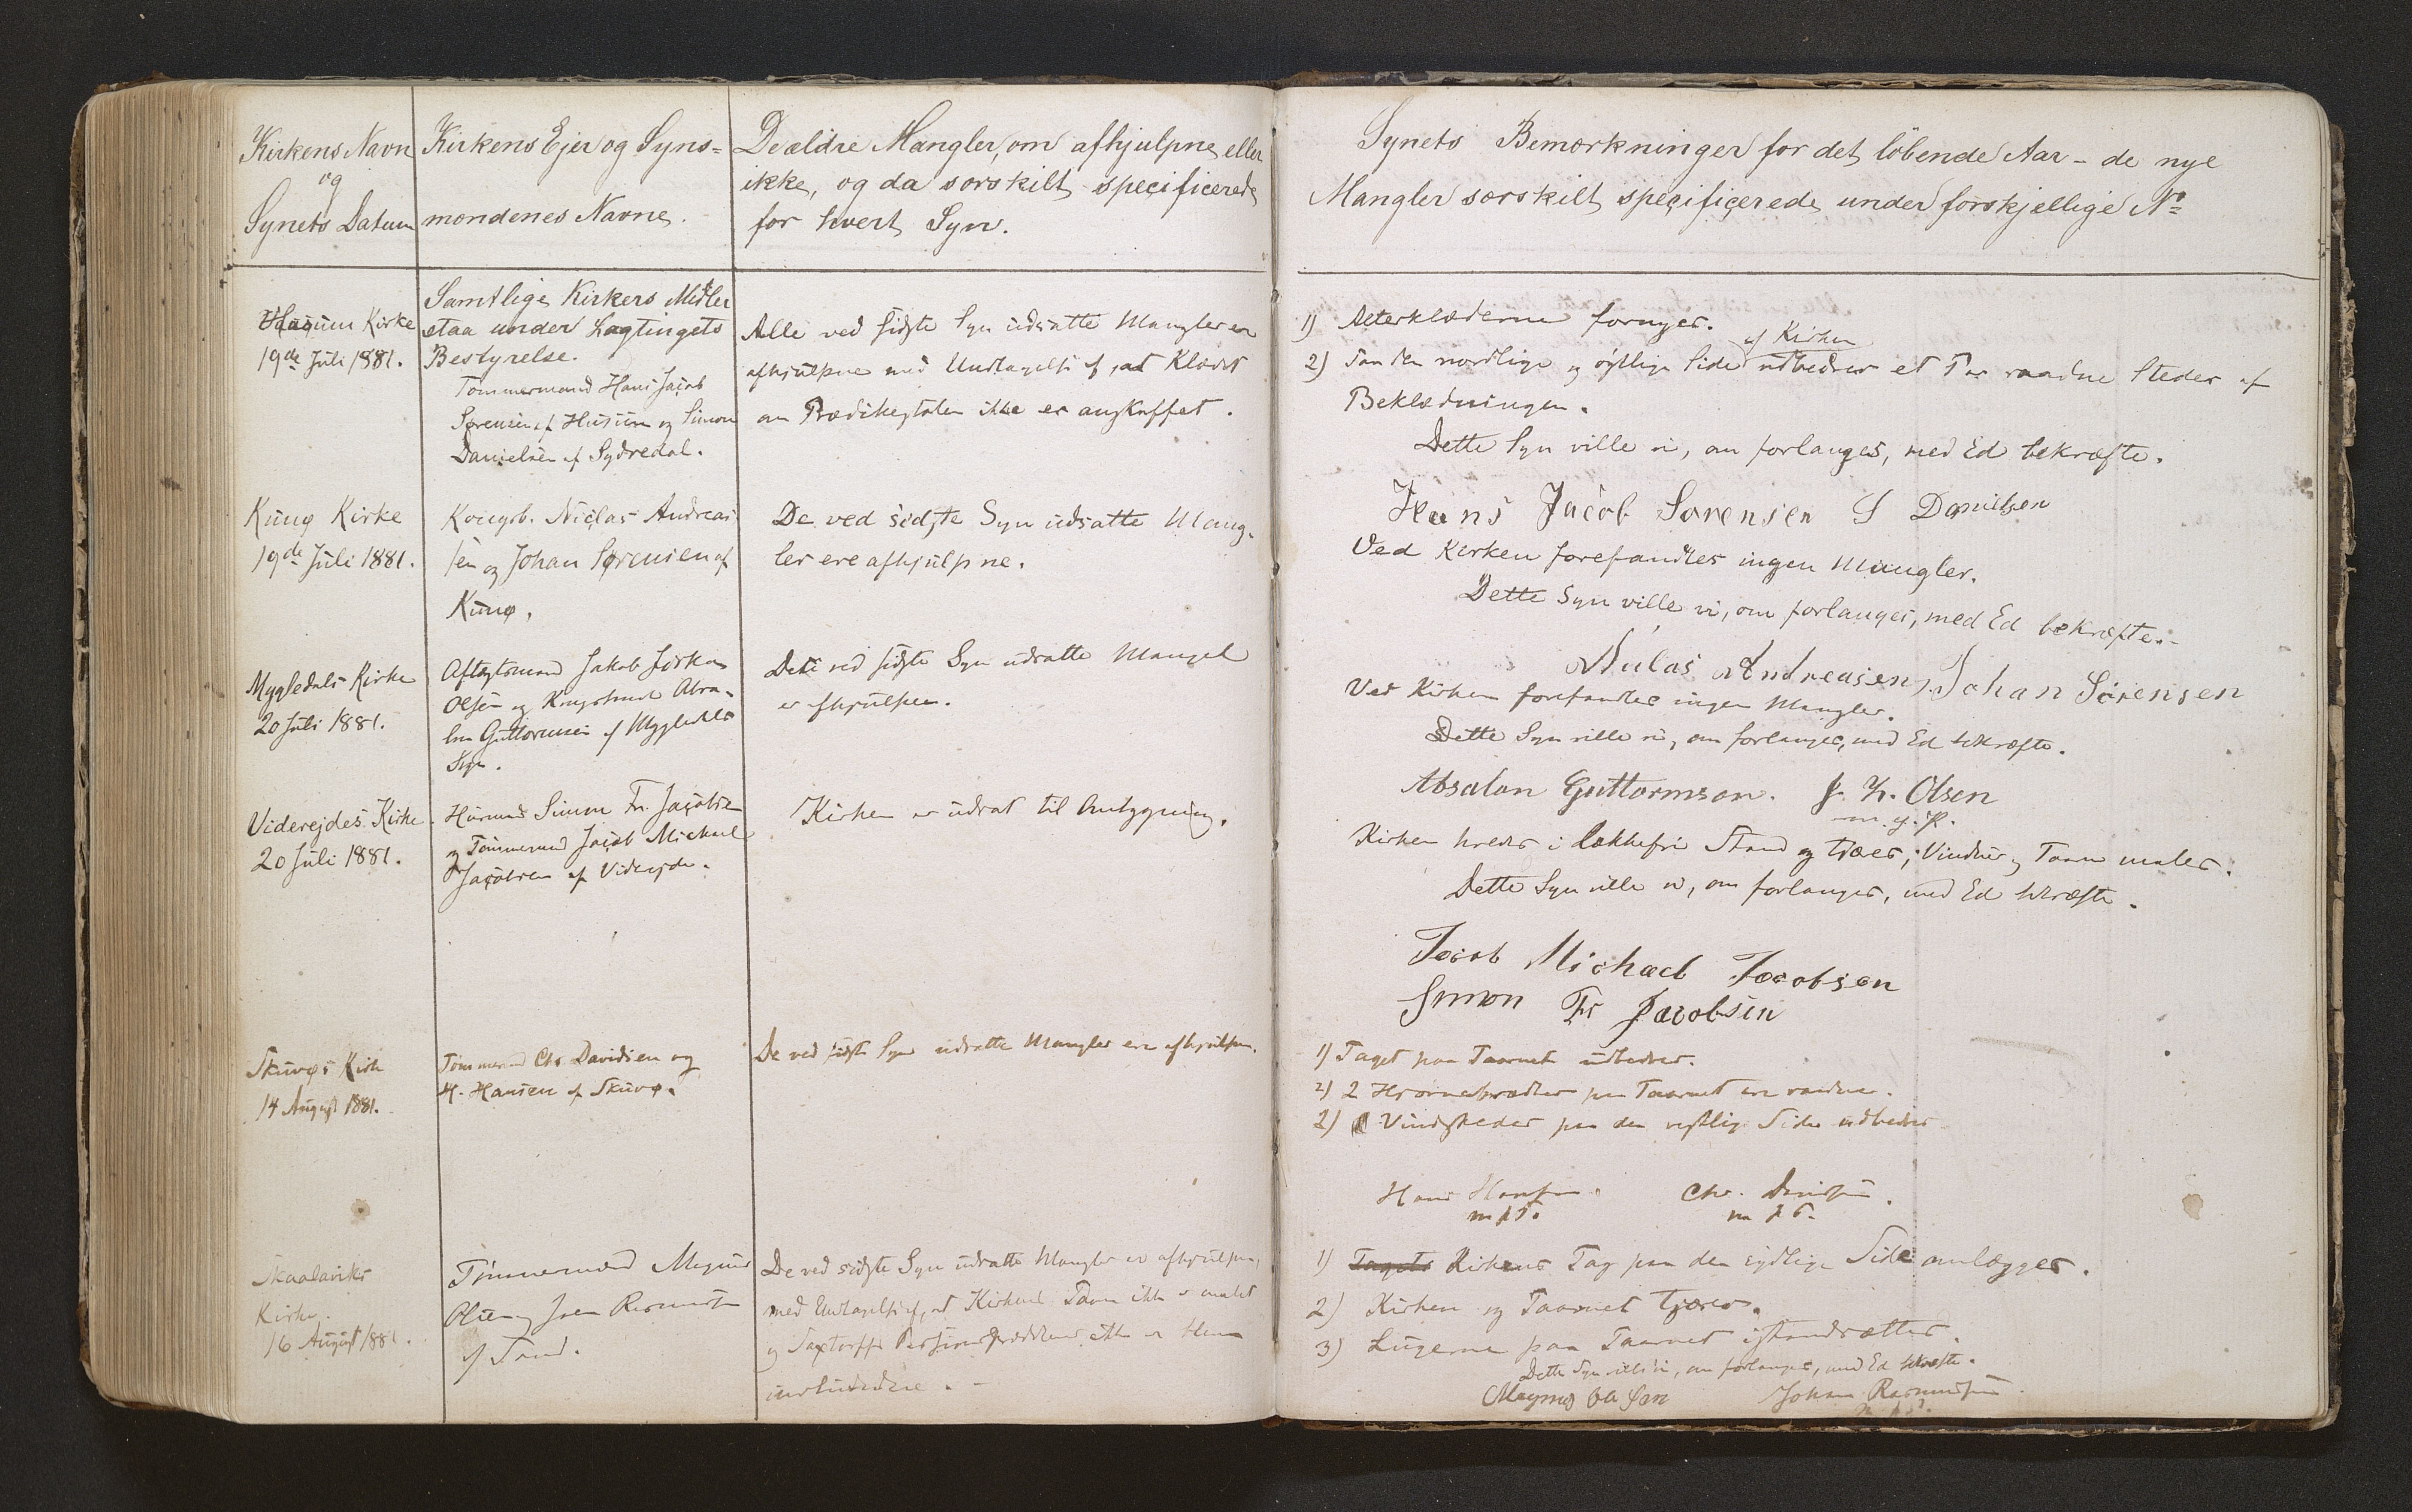 Kirkens Navn
og
Synets Datum
Kirkens Ejer og Syns-
mændenes Navne.
De ældre Mangler, om afhjulpne, eller
ikke, og da særskilt specificerede
for hvert Syn.
Husum Kirke
19de Juli 1881.
Samtlige Kirkers Midler
staa under Lagtingets
Bestyrelse.
Tømmermand Hans Jacob
Sørensen af Husum og Simon
Danielsen af Sydredal.
Alle ved sidste Syn udsatte Mangler ere
afhjulpne med Undtagelse af, at Klædet
om Prædikestolen ikke er anskaffet.
Kunø Kirke
19de Juli 1881.
Kongsb. Niclas Andreas
sen og Johan Sørensen af
Kunø.
De ved sidste Syn udsatte Mang-
ler ere afhjulpne.
Mygledals Kirke
20 Juli 1881.
Aftægtsmand Jakob
Olsen og
Guttormsen af Mygledals
Den ved sidste Syn udsatte Mangel
er afhjulpen.
Viderejdes Kirke
20 Juli 1881.
Simon Fr. Jacobsen
og Tømmermand Jacob Michael
Jacobsen af Viderejde.
Kirken er udsat til Ombygning.
Skuvøs Kirke
14 August 1881.
Tømmermænd Chr. Davidsen og
H. Hansen af Skuvø.
De ved sidste Syn udsatte Mangler ere afhjulpne.
Skaalaviks
Kirke
16 August 1881.
Tømmermænd Magnus
Olsen og Joen Rasmussen
af Sand.
De ved sidste Syn udsatte Mangler er afhjulpne,
med Undtagelse af, at Kirkens Taarn ikke er malet
og ikke er
Synets Bemærkninger for det løbende Aar - de nye
Mangler særskilt specificerede under forskjellige No
1) Alterklæderne fornyes.
af Kirken
2) Paa den nordlige og østlige Side udbedres et Par raadne Steder af
Beklædningen.
Dette Syn ville vi, om forlanges, med Ed bekræfte.
Hans Jacob Sørensen S Danielsen
Ved Kirken forefandtes ingen Mangler.
Dette Syn ville vi, om forlanges, med Ed bekræfte.
Niclas Andreasen, Johan Sørensen
Ved Kirken forefandtes ingen Mangler.
Dette Syn ville vi, om forlanges, med Ed bekræfte.
Absalon Guttormson. J. H. Olsen
Kirken holdes i lækkefri Stand og tjæres, Vinduer og Taarn males.
Dette Syn ville vi, om forlanges, med Ed bekræfte.
Jacob Michael Jacobsen
Simon Fr Jacobsen
1) Taget paa Taarnet udbedres.
2) 2 Hjørnebrædder paa Taarnet ere raadne.
2) Vindskeder paa den vestlige Side udbedres
Hans Hansen. Chr. Davidsen.
1) Tagets Kirkens Tag paa den sydlige Side omlægges.
2) Kirken og Taarnet tjæres.
3) Lugerne paa Taarnet istandsættes.
Dette Syn ville vi, om forlanges, med Ed bekræfte.
Magnus Olsen Johan Rasmussen